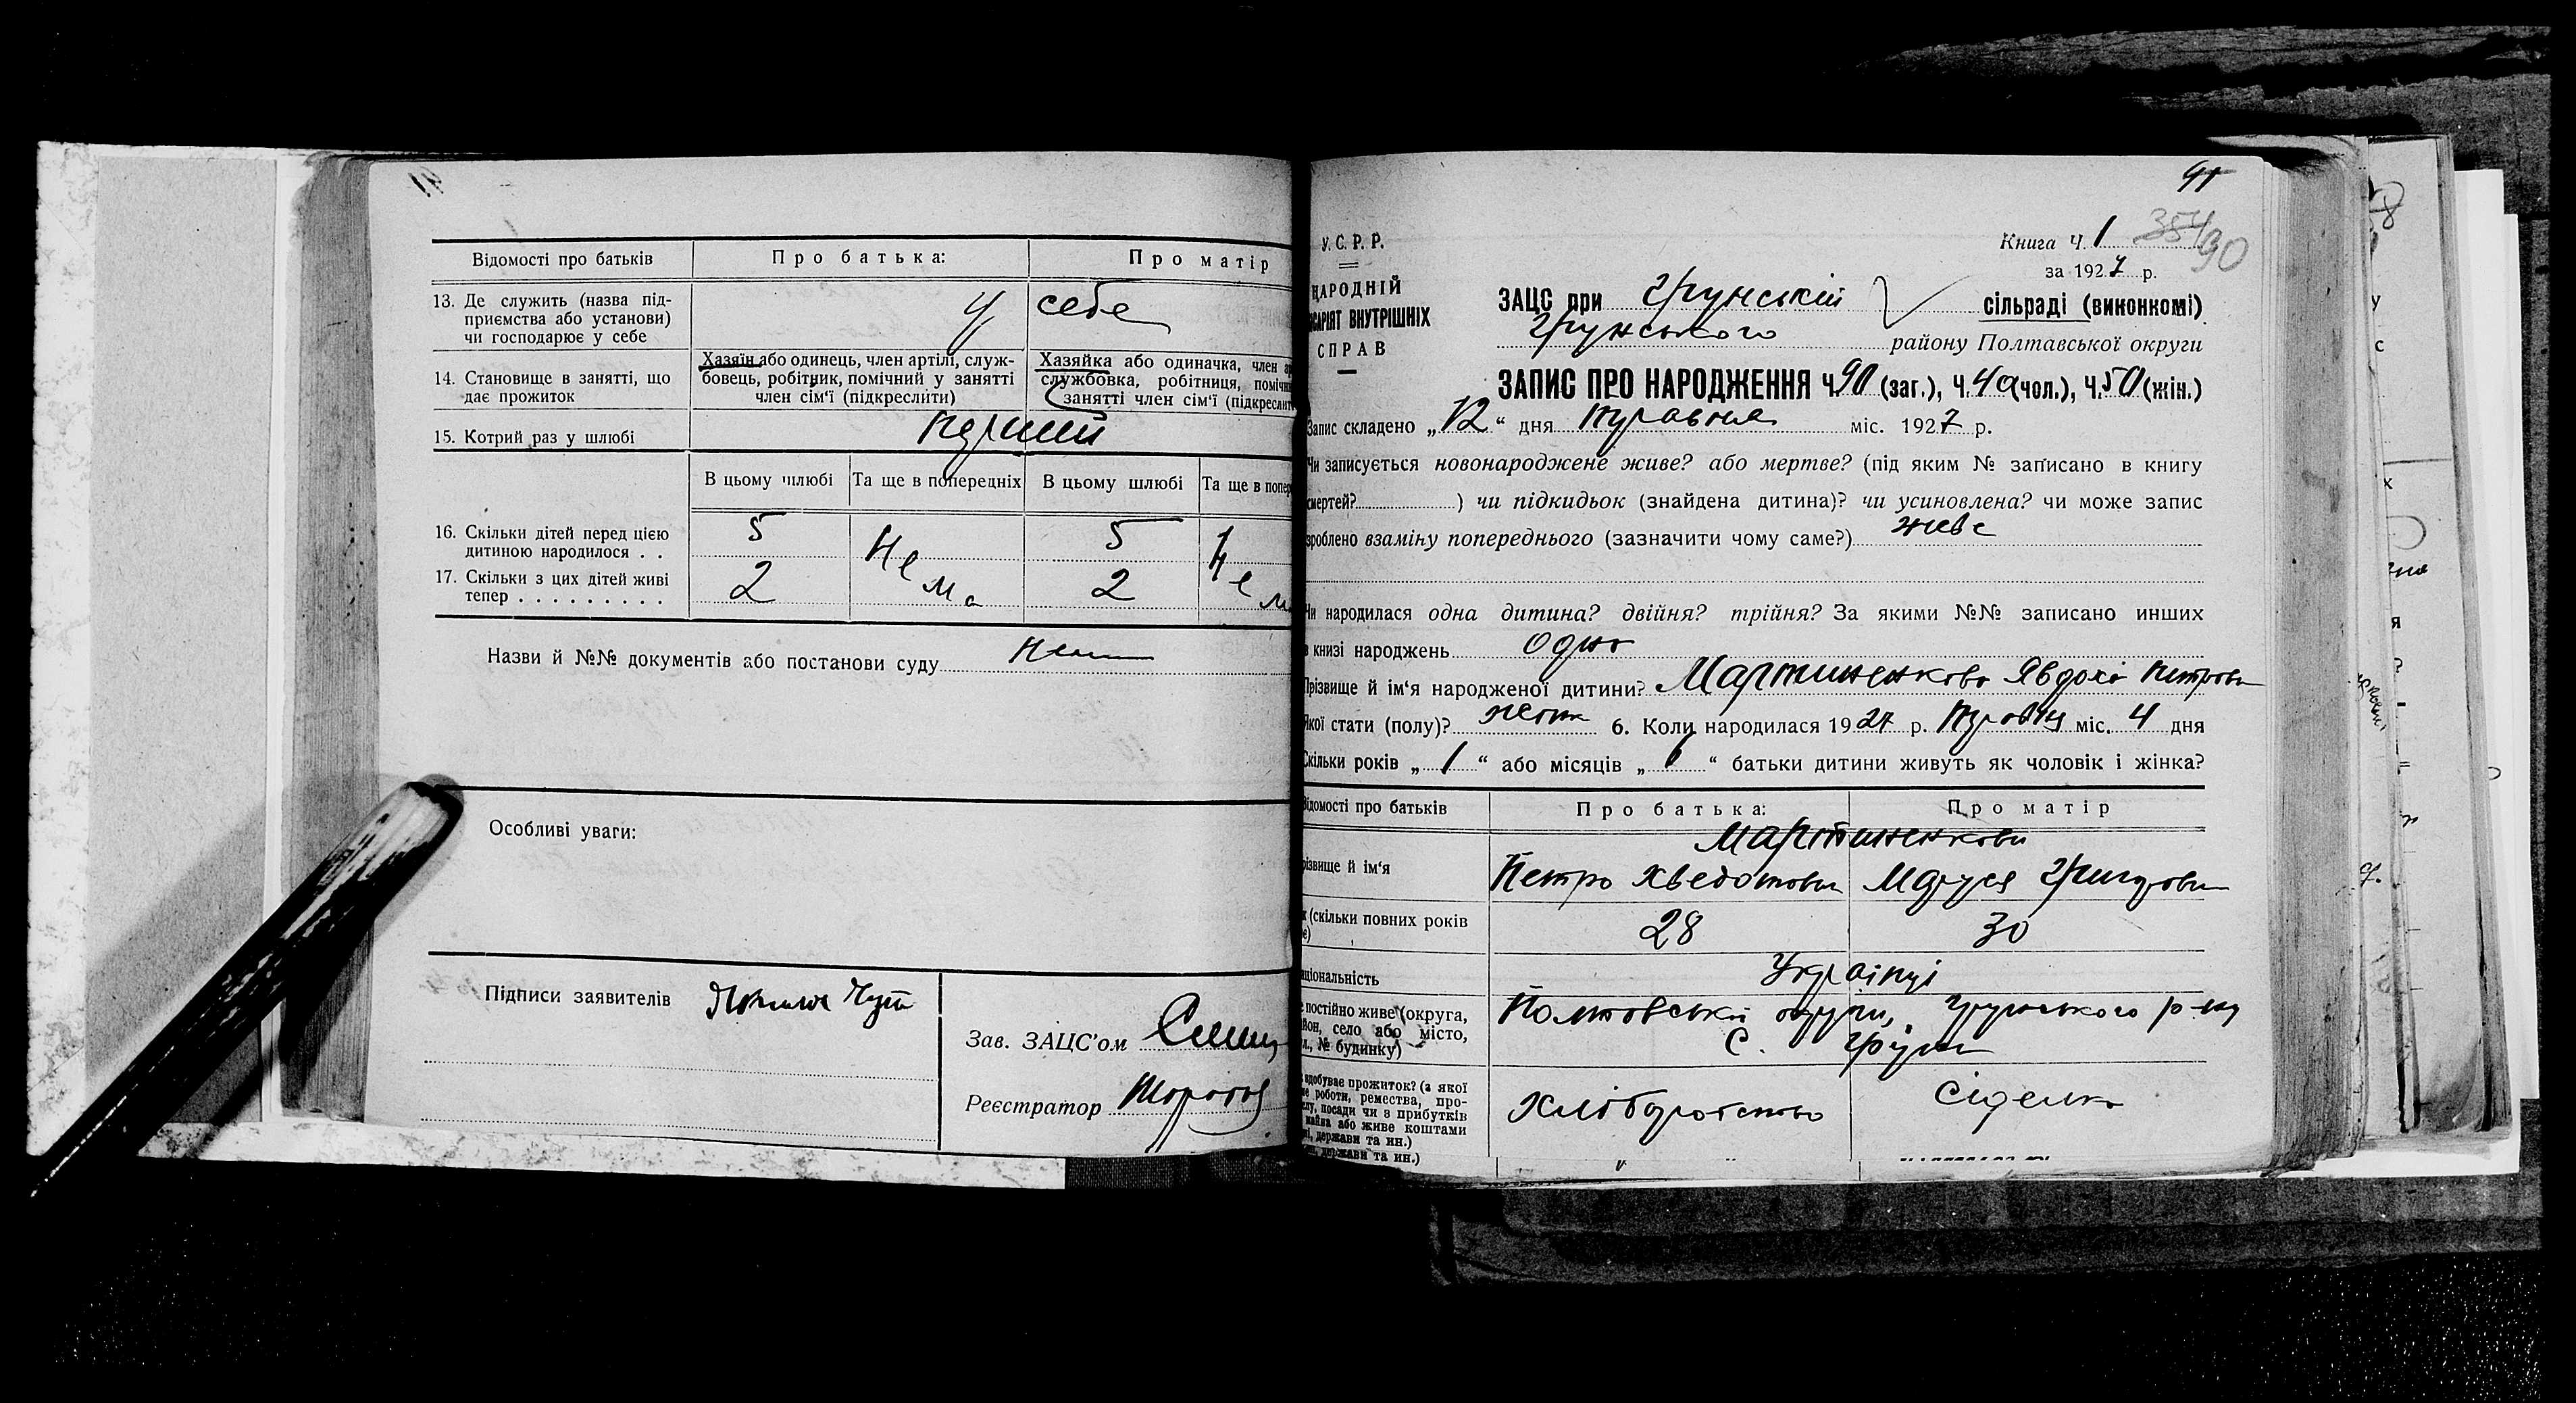 Відомості про батьків
Про батька:
Про матір
13. Де служить (назва під-
приємства або установи)
чи господарює у себе
у себе
14. Становище в занятті, що
дає прожиток
Хазяїн або одинець, член артілі, служ-
бовець, робітник, помічний у занятті
член сім'ї (підкреслити)
Хазяйка або одиначка, член
службовка, робітниця,
занятті член сім'ї
15. Котрий раз у шлюбі
перший
В цьому шлюбі
Та ще в попередніх
В цьому шлюбі
Та ще в
16. Скільки дітей перед цією
дитиною народилося . .
5
Нема
5
Нема
17. Скільки з цих дітей живі
тепер . . . . . . . . .
2
2
Назви й №№ документів або постанови суду
Особливі уваги:
Підписи заявителів
Зав. ЗАЦС'ом
Реєстратор
91
У. С. Р. Р.
НАРОДНІЙ
ВНУТРІШНІХ
СПРАВ
Книга Ч. 1
354/90
за 1927 р.
ЗАЦС при Грунській сільраді (виконкомі)
Грунського району Полтавської округи
ЗАПИС ПРО НАРОДЖЕННЯ Ч. 90 (заг.), Ч. 40 (чол.), Ч. 50 (жін.)
Запис складено „12“ дня Травня міс. 1927 р.
Чи записується новонароджене живе? або мертве? (під яким № записано в книгу
смертей? ) чи підкидьок (знайдена дитина)? чи усиновлена? чи може запис
зроблено взаміну попереднього (зазначити чому саме?) живе
Чи народилася одна дитина? двійня? трійня? За якими №№ записано инших
в книзі народжень одно
Прізвище й ім'я народженої дитини? Мартиненкова Явдоха Петровн
Якої стати (полу)? жіноч 6. Коли народилася 1927 р. Травня міс. 4 дня
Скільки років „1“ або місяців „ “ батьки дитини живуть як чоловік і жінка?
Відомості про батьків
Про батька:
Про матір
Мартиненкови
Прізвище й ім'я
Петро Хведотович
Маруся Григоровн
(скільки повних років
28
30
національність
Українці
постійно живе (округа,
район, село або місто,
№ будинку)
Полтовської округи, Грунського р-ну
с. Грунь
здобуває прожиток? (з якої
роботи, ремества, про-
посади чи з прибутків
майна або живе коштами
держави та ин.)
Хліборобство
держави та ин.)